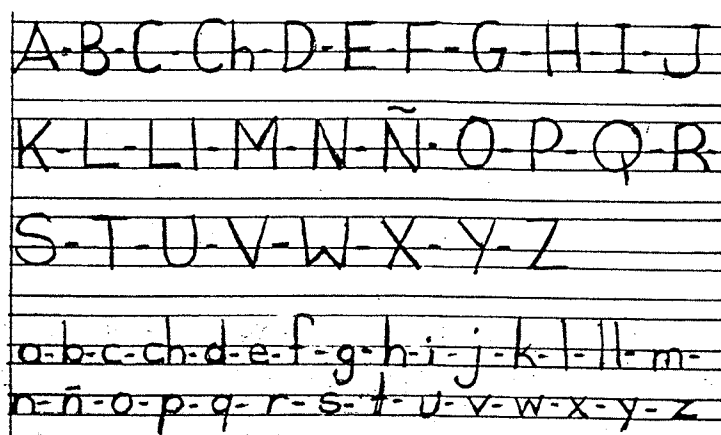 A-B-C-Ch-D-E-F-G-H-I-J
K-L-Ll-M-N-Ñ-O-P-Q-R-
S-T-U-V-W-X-Y-Z
a-b-c-ch-d-e-f-g-h-i-j-k-l-ll-m-
n-ñ-o-p-q-r-s-t-u-v-w-x-y-z